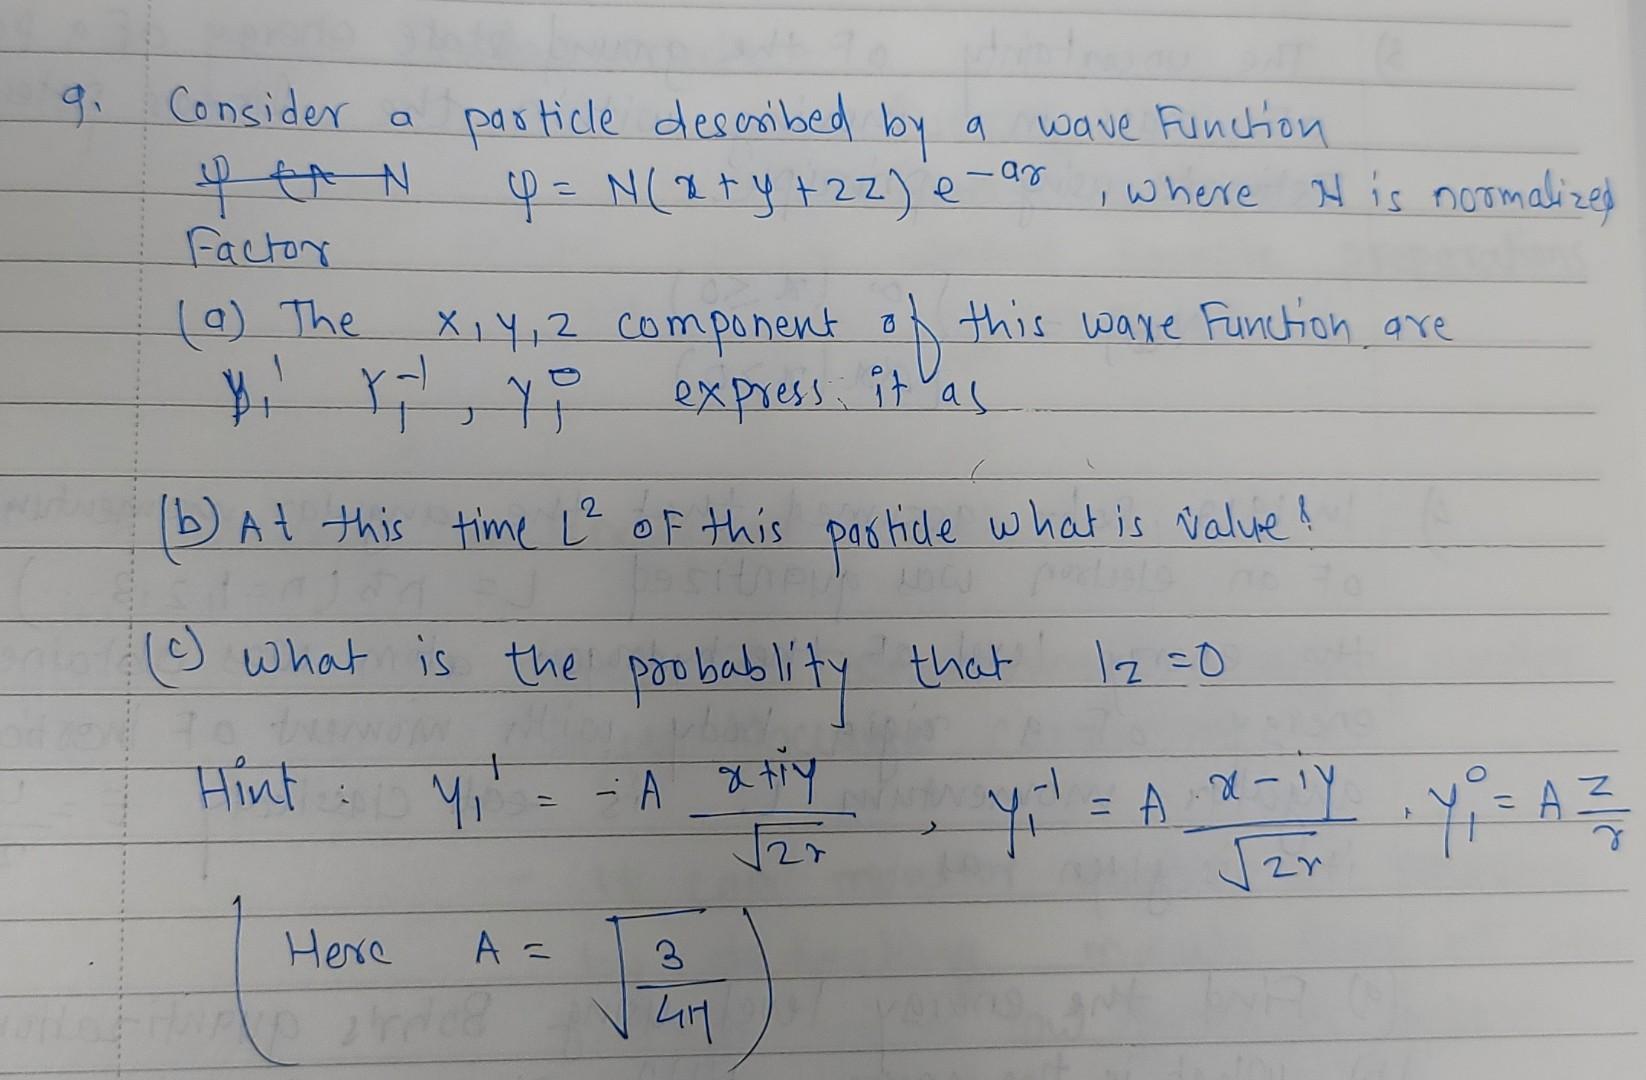 9. Consider a particle described by a wave Function
φ = N(x + y + 2z) e^-ar , where N is normalized
Factor
(a) The x, y, z component of this wave Function are
Y₁¹ Y₁⁻¹, Y₁⁰ express it as
(b) At this time L² oF this particle what is value?
(c) what is the probablity that lz = 0
Hint : Y₁¹ = -A (x+iy)/(√2r) , Y₁⁻¹ = A (x-iy)/(√2r) , Y₁⁰ = A z/r
(Here A = √(3/4π))